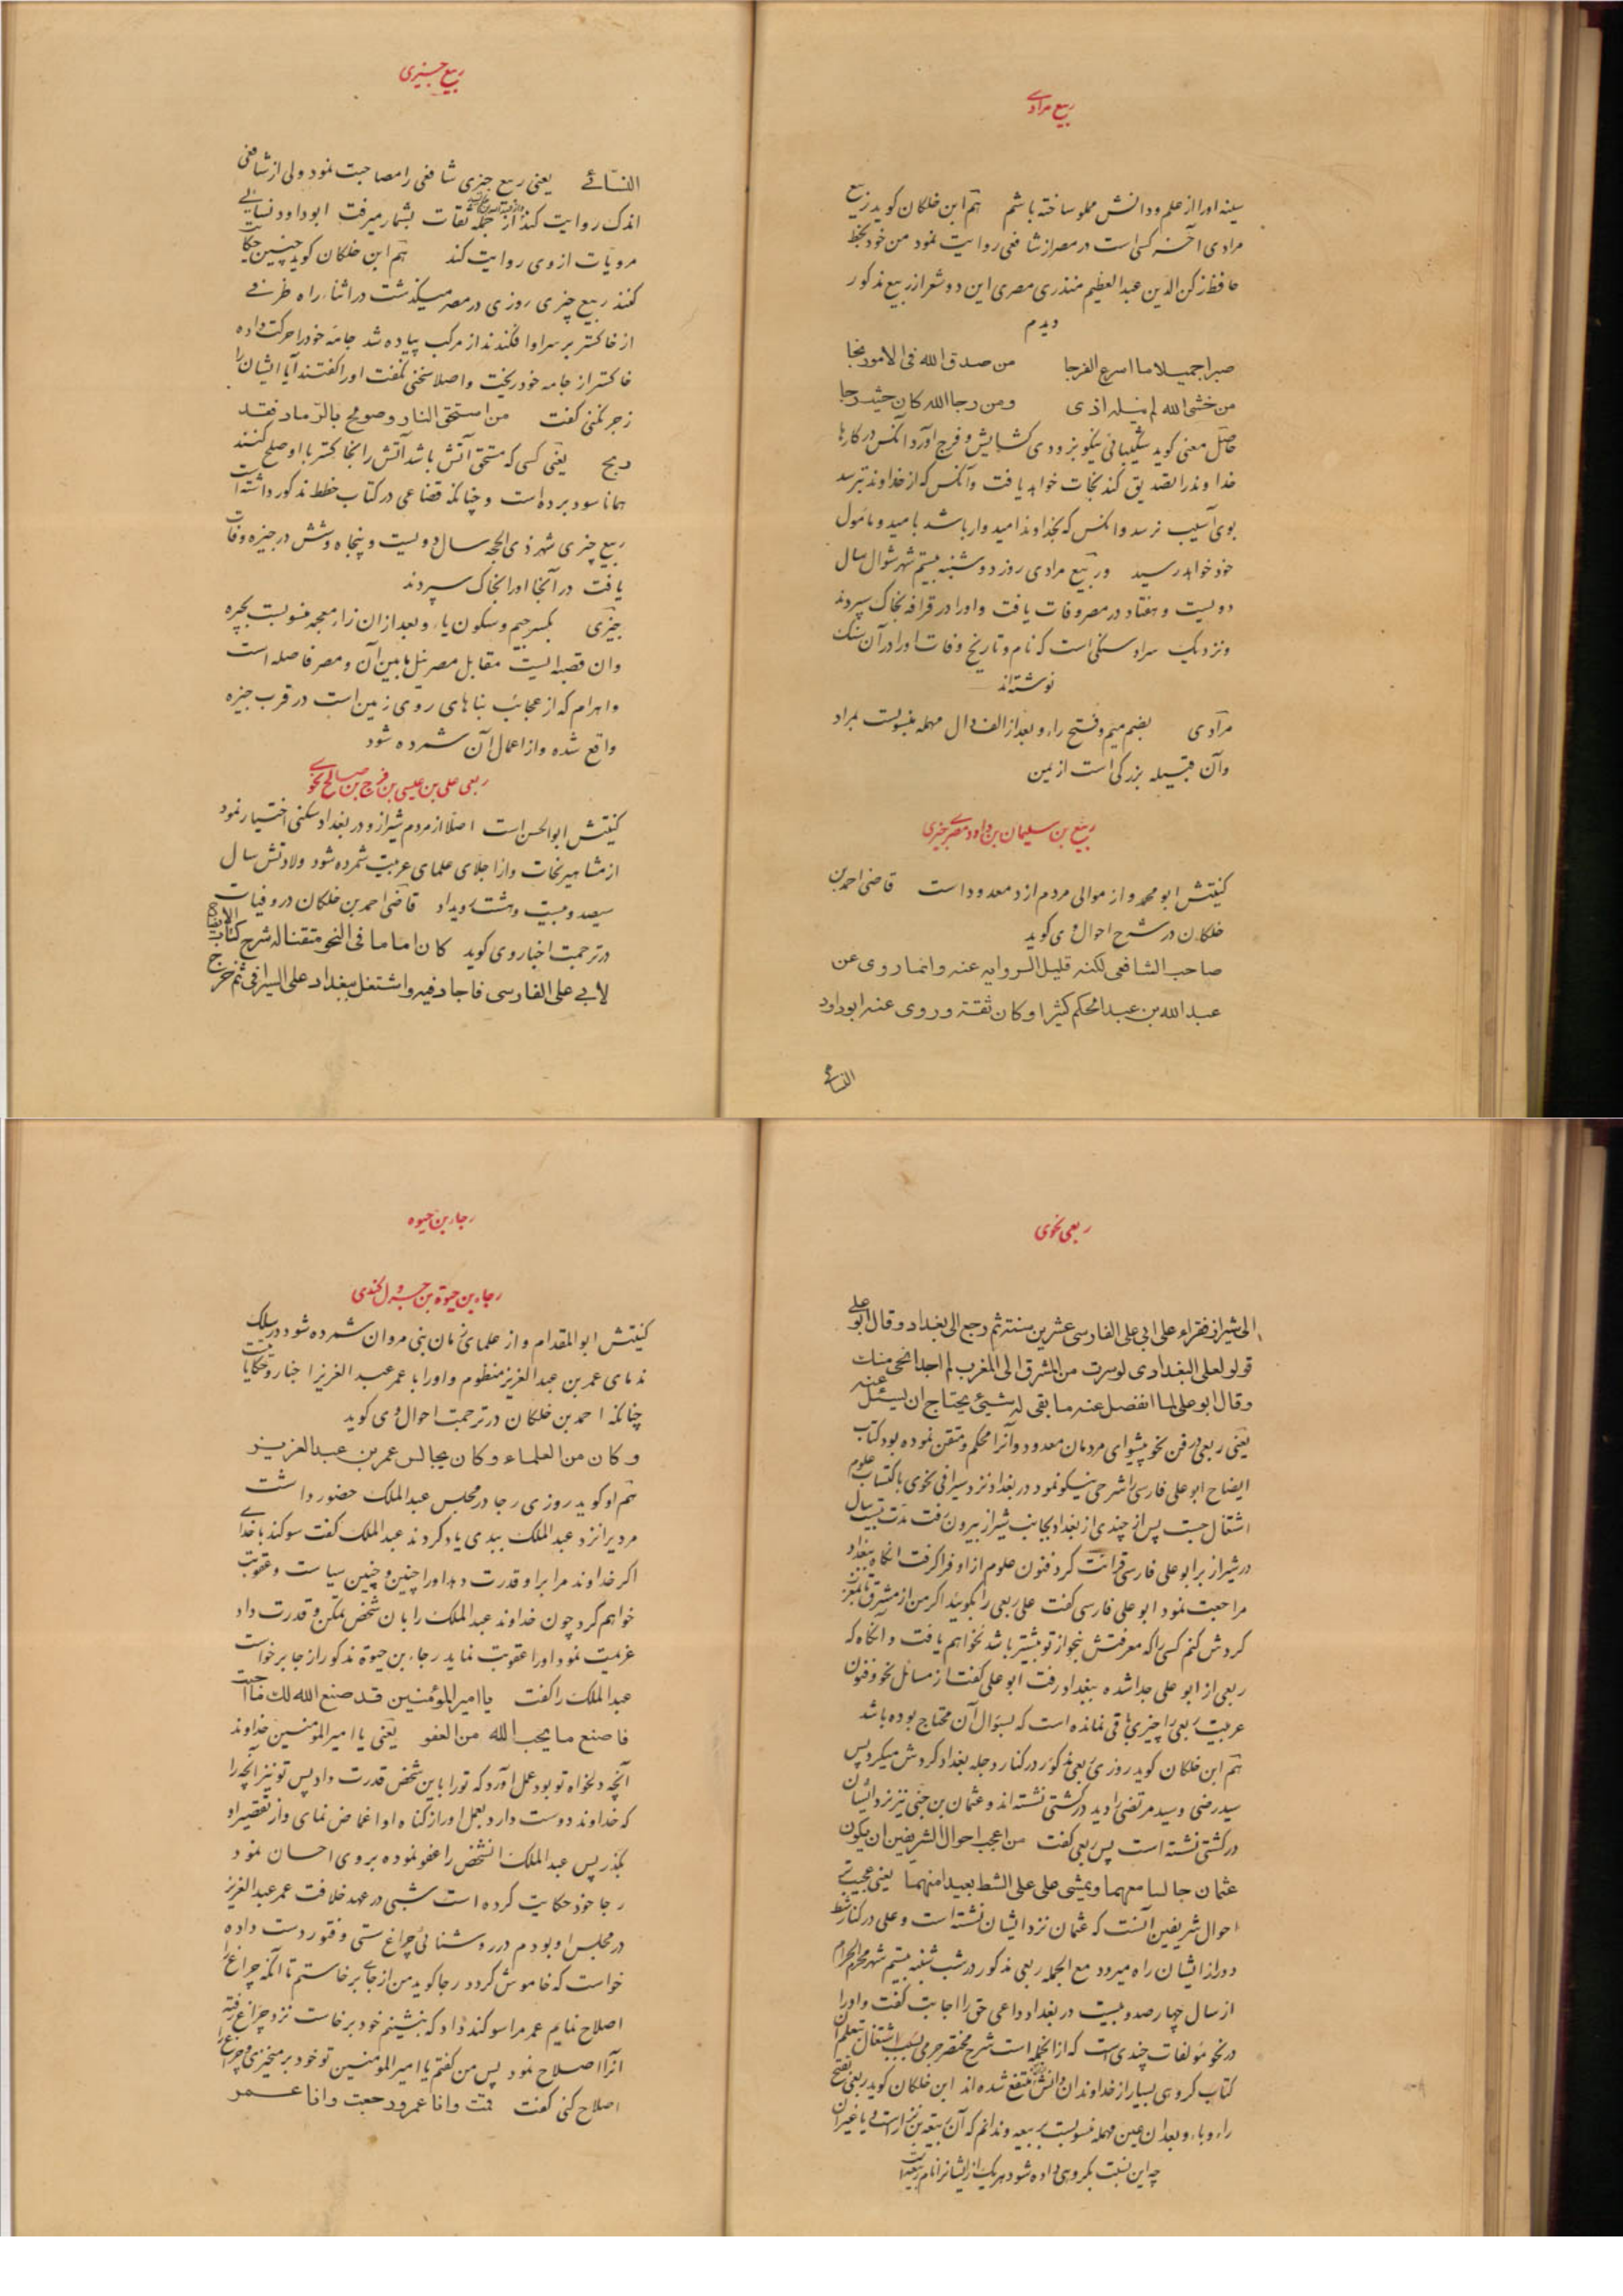 ربیع مرادے
سینه اورا از علم و دانش مملو ساخته باشم هم ابن خلکان کوید ربیع
مرادی آخر کسی است در مصر از شافعی روایت نمود من خود بخط
حافظ زکن الدین عبدالعظیم منذری مصری این دو شعر از ربیع مذکور
دیدم
صبرا جمیلا ما اسرع الفرجا من صدق الله فی الامور نجا
من خشی الله لم ینله اذی ومن رجا الله کان حیث رجا
حاصل معنی کوید شکیبائی نیکو بزودی کشایش و فرج آورد آنکس در کارها
خداوند را تصدیق کند نجات خواهد یافت و آنکس که از خداوند بترسد
بوی آسیب نرسد و آنکس که بخداوند امیدوار باشد بامید و مامول
خود خواهد رسید و ربیع مرادی روز دوشنبه بیستم شهر شوال سال
دویست و هفتاد در مصر وفات یافت و اورا در قرافه بخاک سپردند
و نزدیک سراو سنکی است که نام و تاریخ وفات اورا در آن سنک
نوشته‌اند
مرادی بضم میم و فتح راء و بعد از الف دال مهمله منسوبست بمراد
و آن قبیله بزرکی است از یمن
ربیع بن سلیمان بن داود مصری جیزی
کنیتش ابو محمد و از موالی مردم ازد معدود است قاضی احمد بن
خلکان در شرح احوال وی کوید
صاحب الشافعی لکنه قلیل الروایه عنه وانما روی عن
عبدالله بن عبدالحکم کثیرا و کان ثقة وروی عنه ابوداود
النسائے
ربیع جیزی
النسّائے یعنی ربیع جیزی شافعی را مصاحبت نمود ولی از شافعی
اندک روایت کند از جمله ثقات بشمار میرفت ابوداود نسایی
مرویّات از وی روایت کند هم ابن خلکان کوید چنین حکایت
کنند ربیع جیزی روزی در مصر میکذشت در اثناء راه ظرفی
از خاکستر بر سر او افکندند از مرکب پیاده شد جامه خود را حرکت داده
خاکستر از جامه خود ریخت و اصلا سخنی نکفت اورا کفتند آیا ایشان را
زجر نکنی کفت من استحق النار و صولح بالرّماد فقد
ربح یعنی کسی که مستحق آتش باشد آتش را بخاکستر با او صلح کنند
همانا سود برده است و چنانکه قضاعی در کتاب خطط مذکور داشته است
ربیع جیزی شهر ذی الحجه سال دویست و پنجاه و شش در جیزه وفات
یافت در آنجا اورا بخاک سپردند
جیزی بکسر جیم و سکون یاء و بعد از ان زاء معجمه منسوبست بجیزه
و ان قصبه ایست مقابل مصر نیل مابین آن و مصر فاصله است
و اهرام که از عجائب بناهای روی زمین است در قرب جیزه
واقع شده و از اعمال آن شمرده شود
ربعی علی بن عیسی بن فرج بن صالح نحوی
کنیتش ابوالحسن است اصلا از مردم شیراز و در بغداد سکنی اختیار نمود
از مشاهیر نحات و از اجلای علمای عربیت شمرده شود ولادتش سال
سیصد و بیست و هشت رویداد قاضی احمد بن خلکان در وفیات
در ترجمت اخبار وی کوید کان اماما فی النحو متقنا له شرح کتاب الایضاح
لابے علی الفارسی فاجاد فیه و اشتغل ببغداد علی السیرافی ثم خرج
ربعی نحوی
الی شیراز فقراء علی ابی علی الفارسی عشرین سنة ثم رجع الی بغداد وقال ابو علی
قولوا لعلی البغدادی لو سرت من المشرق الی المغرب لم اجد انحی منک
وقال ابو علی لما انفصل عنه ما بقی له شیئی یحتاج ان یسئل عنه
یعنی ربعی در فن نحو پیشوای مردمان معدود و آنرا محکم و متقن نموده بود کتاب
ایضاح ابو علی فارسی را شرحی نیکو نمود در بغداد نزد سیرافی نحوی باکتساب علوم
اشتغال جست پس از چندی از بغداد بجانب شیراز بیرون رفت مدت بیست سال
در شیراز بر ابو علی فارسی قرائت کرد فنون علوم از او فرا کرفت انکاه ببغداد
مراجعت نمود ابو علی فارسی کفت علی ربعی را بکوئید اکر من از مشرق تا بمغرب
کردش کنم کسی را که معرفتش بنحو از تو بیشتر باشد نخواهم یافت و آنکاه که
ربعی از ابو علی جدا شده ببغداد رفت ابو علی کفت از مسائل نحو و فنون
عربیت ربعی را چیزی باقی نمانده است که بسؤال آن محتاج بوده باشد
هم ابن خلکان کوید روزی ربعی مذکور در کنار دجله بغداد کردش میکرد پس
سید رضی و سید مرتضی را دید در کشتی نشسته‌اند و عثمان بن جنی نیز نزد ایشان
در کشتی نشسته است پس ربعی کفت من اعجب احوال الشریفین ان یکون
عثمان جالسا معهما و یمشی علی علی الشط بعیدا منهما یعنی عجیبترین
احوال شریفین آنست که عثمان نزد ایشان نشسته است و علی در کنار شط
دور از ایشان راه میرود مع الجمله ربعی مذکور در شب شنبه بیستم شهر محرم الحرام
از سال چهار صد و بیست در بغداد داعی حق را اجابت کفت و اورا
در نحو مؤلفات چندی است که از انجمله است شرح مختصر جرمی بسبب اشتغال بتعلم آن
کتاب کروهی بسیار از خداوندان دانش منتفع شده‌اند ابن خلکان کوید ربعی بفتح
راء و باء و بعد ان عین مهمله منسوبست بربیعه و ندانم که آن ربیعه بن نزار است و یا غیر ان
چه این نسبت بکروهی داده شود هر یک از ایشانرا نام ربیعه است
رجاء بن حیوه
رجاء بن حیوة بن جرول کندی
کنیتش ابوالمقدام و از علمای زمان بنی مروان شمرده شود در سلک
ندمای عمر بن عبدالعزیز منظوم و اورا با عمر عبدالعزیز اخبار و حکایاتیست
چنانکه احمد بن خلکان در ترجمت احوال وی کوید
و کان من العلماء و کان یجالس عمر بن عبدالعزیز
هم او کوید روزی رجا در مجلس عبدالملک حضور داشت
مردیرا نزد عبدالملک ببدی یاد کردند عبدالملک کفت سوکند باخدای
اکر خداوند مرا بر او قدرت دهد اورا چنین و چنین سیاست و عقوبت
خواهم کرد چون خداوند عبدالملک را بان شخص تمکن و قدرت داد
عزیمت نمود اورا عقوبت نماید رجاء بن حیوة مذکور از جا برخواست
عبدالملک را کفت یا امیرالمؤمنین قد صنع الله لک ما احببت
فاصنع ما یحب الله من العفو یعنی یا امیر المومنین خداوند
آنچه دلخواه تو بود بعمل آورد که تورا باین شخص قدرت داد پس تو نیز آنچه را
که خداوند دوست دارد بعمل اور از کناه او اغماض نمای و از تقصیر او
بکذر پس عبدالملک انشخص را عفو نموده بر وی احسان نمود
رجا خود حکایت کرده است شبی در عهد خلافت عمر عبدالعزیز
در مجلس او بودم در روشنائی چراغ سستی و فتور دست داده
خواست که خاموش کردد رجا کوید من از جاے برخاستم تا آنکه چراغ را
اصلاح نمایم عمر مرا سوکند داد که بنشینم خود برخاست نزد چراغ رفته
انرا اصلاح نمود پس من کفتم یا امیرالمومنین تو خود برمیخیزی و چراغ را
اصلاح کنی کفت قمت وانا عمر و رجعت وانا عمر